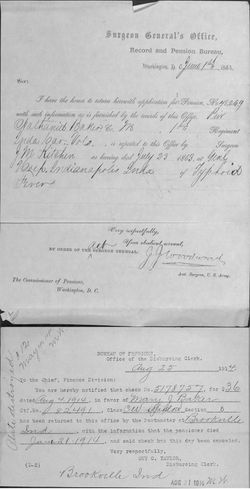 Surgeon General's Office,
Record and Pension Bureau,
Washington, D. C. June 1st, 188
Sir:
I have the honor to return herewith application for Pension, No.
with such information as is furnished by the record of this Office. Priv
Nathaniel Baker, Co 1st Regiment
Inda Cav. Vols., is reported to this Office by Surgeon
J M Kitchen as having died July 23 1863, at Genl
Hosp. Indianapolis Inda of Typhoid
Fever
Very respectfully,
Your obedient servant,
BY ORDER OF THE Actg SURGEON GENERAL:
J J Woodward
Surgeon, U. S. Army.
The Commissioner of Pensions,
Washington, D. C.
BUREAU OF PENSIONS,
Office of the Disbursing Clerk.
Aug 25 1914
To the Chief, Finance Division:
You are hereby notified that check No. 5178757 for $36
dated Aug 4 1914 in favor of Mary J Baker
Ctf. No. 82491 Class Section
has been returned to this office by the Postmaster Brookville
Ind with the information that the pensioner died
June 21 1914, and said check has this day been canceled.
Very respectfully,
GUY O. TAYLOR,
Disbursing Clerk.
Brookville Ind
AUG 31 1914 M.W.